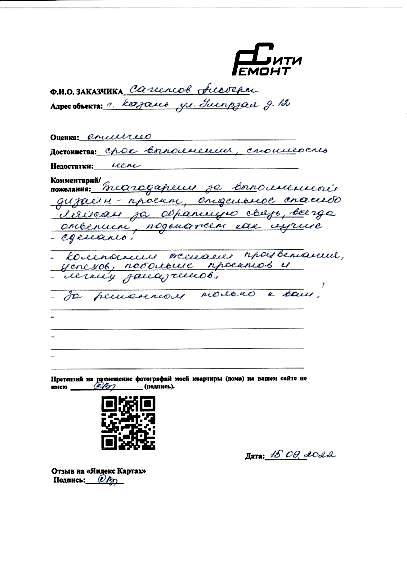 СИТИ
РЕМОНТ
Ф.И.О. ЗАКАЗЧИКА Сагитов Альберт
Адрес объекта: г. Казань ул. д. 12
Оценка: отлично
Достоинства: срок выполнения, стоимость
Недостатки: нет
Комментарий/
пожелания: Благодарим за выполненный
дизайн-проект, отдельное спасибо
Ляйсан за обратную связь, всегда
ответит, подскажет как лучше
- сделать.
- компании желаем процветания,
успехов, побольше проектов и
- легких заказчиков.
- За ремонтом только к вам!
-
-
-
Претензий на размещение фотографий моей квартиры (дома) на вашем сайте не
имею (подпись).
Дата: 15 09 2022
Отзыв на «Яндекс Картах»
Подпись: